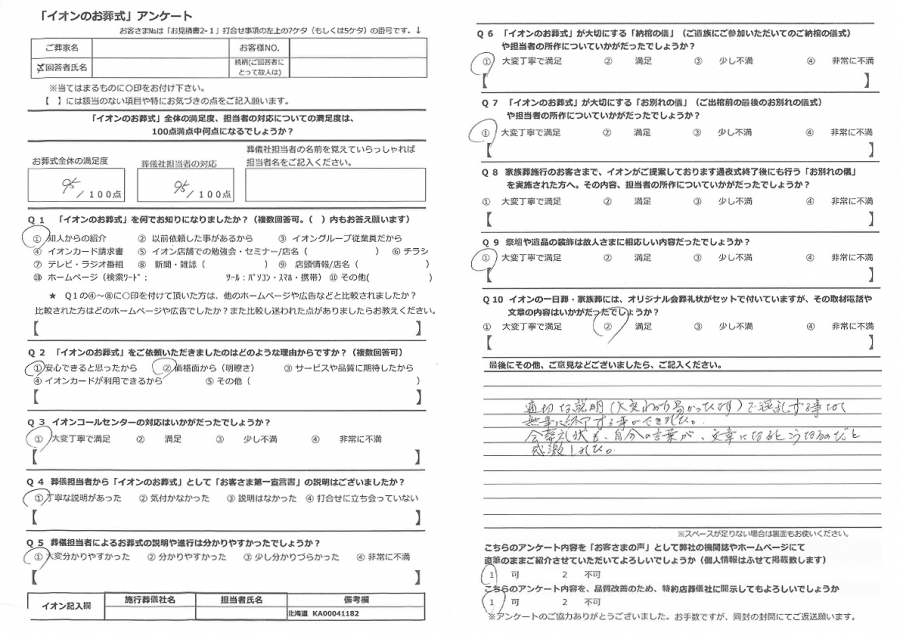 「イオンのお葬式」アンケート
お客さま№は「お見積書2-1」打合せ事項の左上の7ケタ（もしくは5ケタ）の番号です。↓
ご葬家名 お客様NO.
回答者氏名 続柄(ご回答者にとって故人は)
※当てはまるものに○印をお付け下さい。
【 】には該当のない項目や特にお気づきの点をご記入願います。
「イオンのお葬式」全体の満足度、担当者の対応についての満足度は、
100点満点中何点になるでしょうか？
お葬式全体の満足度 葬儀社担当者の対応
葬儀社担当者の名前を覚えていらっしゃれば
担当者名をご記入ください。
95 /100点 95 /100点
Q１ 「イオンのお葬式」を何でお知りになりましたか？（複数回答可。（ ）内もお答え願います）
① 知人からの紹介 ② 以前依頼した事があるから ③ イオングループ従業員だから
④ イオンカード請求書 ⑤ イオン店舗での勉強会・セミナー/店名（ ） ⑥ チラシ
⑦ テレビ・ラジオ番組 ⑧ 新聞・雑誌（ ） ⑨ 店頭情報/店名（ ）
⑩ ホームページ（検索ﾜｰﾄﾞ： ﾂｰﾙ：ﾊﾟｿｺﾝ・ｽﾏﾎ・携帯） ⑪ その他( )
★ Q１の④～⑧に○印を付けて頂いた方は、他のホームページや広告などと比較されましたか？
比較された方はどのホームページや広告でしたか？また比較し迷われた点がありましたらお教えください。
【 】
Q２ 「イオンのお葬式」をご依頼いただきましたのはどのような理由からですか？（複数回答可）
①安心できると思ったから ②価格面から（明瞭さ） ③サービスや品質に期待したから
④イオンカードが利用できるから ⑤その他（ ）
【 】
Q３ イオンコールセンターの対応はいかがだったでしょうか？
① 大変丁寧で満足 ② 満足 ③ 少し不満 ④ 非常に不満
【 】
Q４ 葬儀担当者から「イオンのお葬式」として「お客さま第一宣言書」の説明はございましたか？
①丁寧な説明があった ②気付かなかった ③説明はなかった ④打合せに立ち会っていない
【 】
Q５ 葬儀担当者によるお葬式の説明や進行は分かりやすかったでしょうか？
①大変分かりやすかった ②分かりやすかった ③少し分かりづらかった ④非常に不満
【 】
イオン記入欄 施行葬儀社名 担当者氏名 備考欄
北海道 KA00041182
Q６ 「イオンのお葬式」が大切にする「納棺の儀」（ご遺族にご参加いただいてのご納棺の儀式）
や担当者の所作についていかがだったでしょうか？
① 大変丁寧で満足 ② 満足 ③ 少し不満 ④ 非常に不満
【 】
Q７ 「イオンのお葬式」が大切にする「お別れの儀」（ご出棺前の最後のお別れの儀式）
や担当者の所作についていかがだったでしょうか？
① 大変丁寧で満足 ② 満足 ③ 少し不満 ④ 非常に不満
【 】
Q８ 家族葬施行のお客さまで、イオンがご提案しております通夜式終了後にも行う「お別れの儀」
を実施された方へ。その内容、担当者の所作についていかがだったでしょうか？
① 大変丁寧で満足 ② 満足 ③ 少し不満 ④ 非常に不満
【 】
Q９ 祭壇や遺品の装飾は故人さまに相応しい内容だったでしょうか？
① 大変丁寧で満足 ② 満足 ③ 少し不満 ④ 非常に不満
【 】
Q10 イオンの一日葬・家族葬には、オリジナル会葬礼状がセットで付いていますが、その取材電話や
文章の内容はいかがだったでしょうか？
① 大変丁寧で満足 ② 満足 ③ 少し不満 ④ 非常に不満
【 】
最後にその他、ご意見などございましたら、ご記入ください。
適切な説明（大変わかり易かったです）で混乱する事なく
無事に終了する事ができました。
会葬礼状も、自分の言葉が、文章になるとこうなるのだと
感激しました。
※スペースが足りない場合は裏面もお使いください。
こちらのアンケート内容を「お客さまの声」として弊社の機関誌やホームページにて
直筆のままご紹介させていただいてよろしいでしょうか（個人情報はふせて掲載致します）
1 可 2 不可
こちらのアンケート内容を、品質改善のため、特約店葬儀社に開示してもよろしいでしょうか
1 可 2 不可
※アンケートのご協力ありがとうございました。お手数ですが、同封の封筒にてご返送願います。